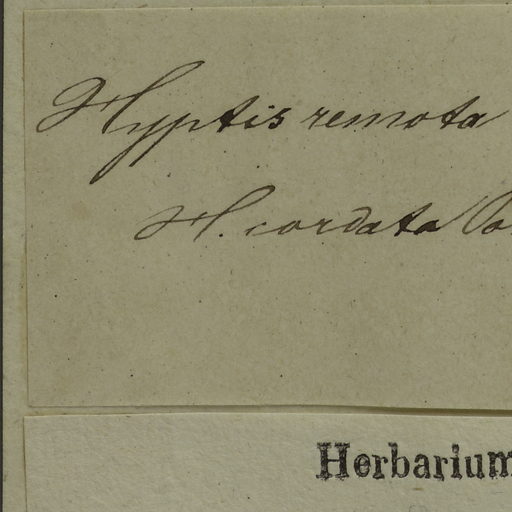 Hyptis remota
H. cordata
Herbarium